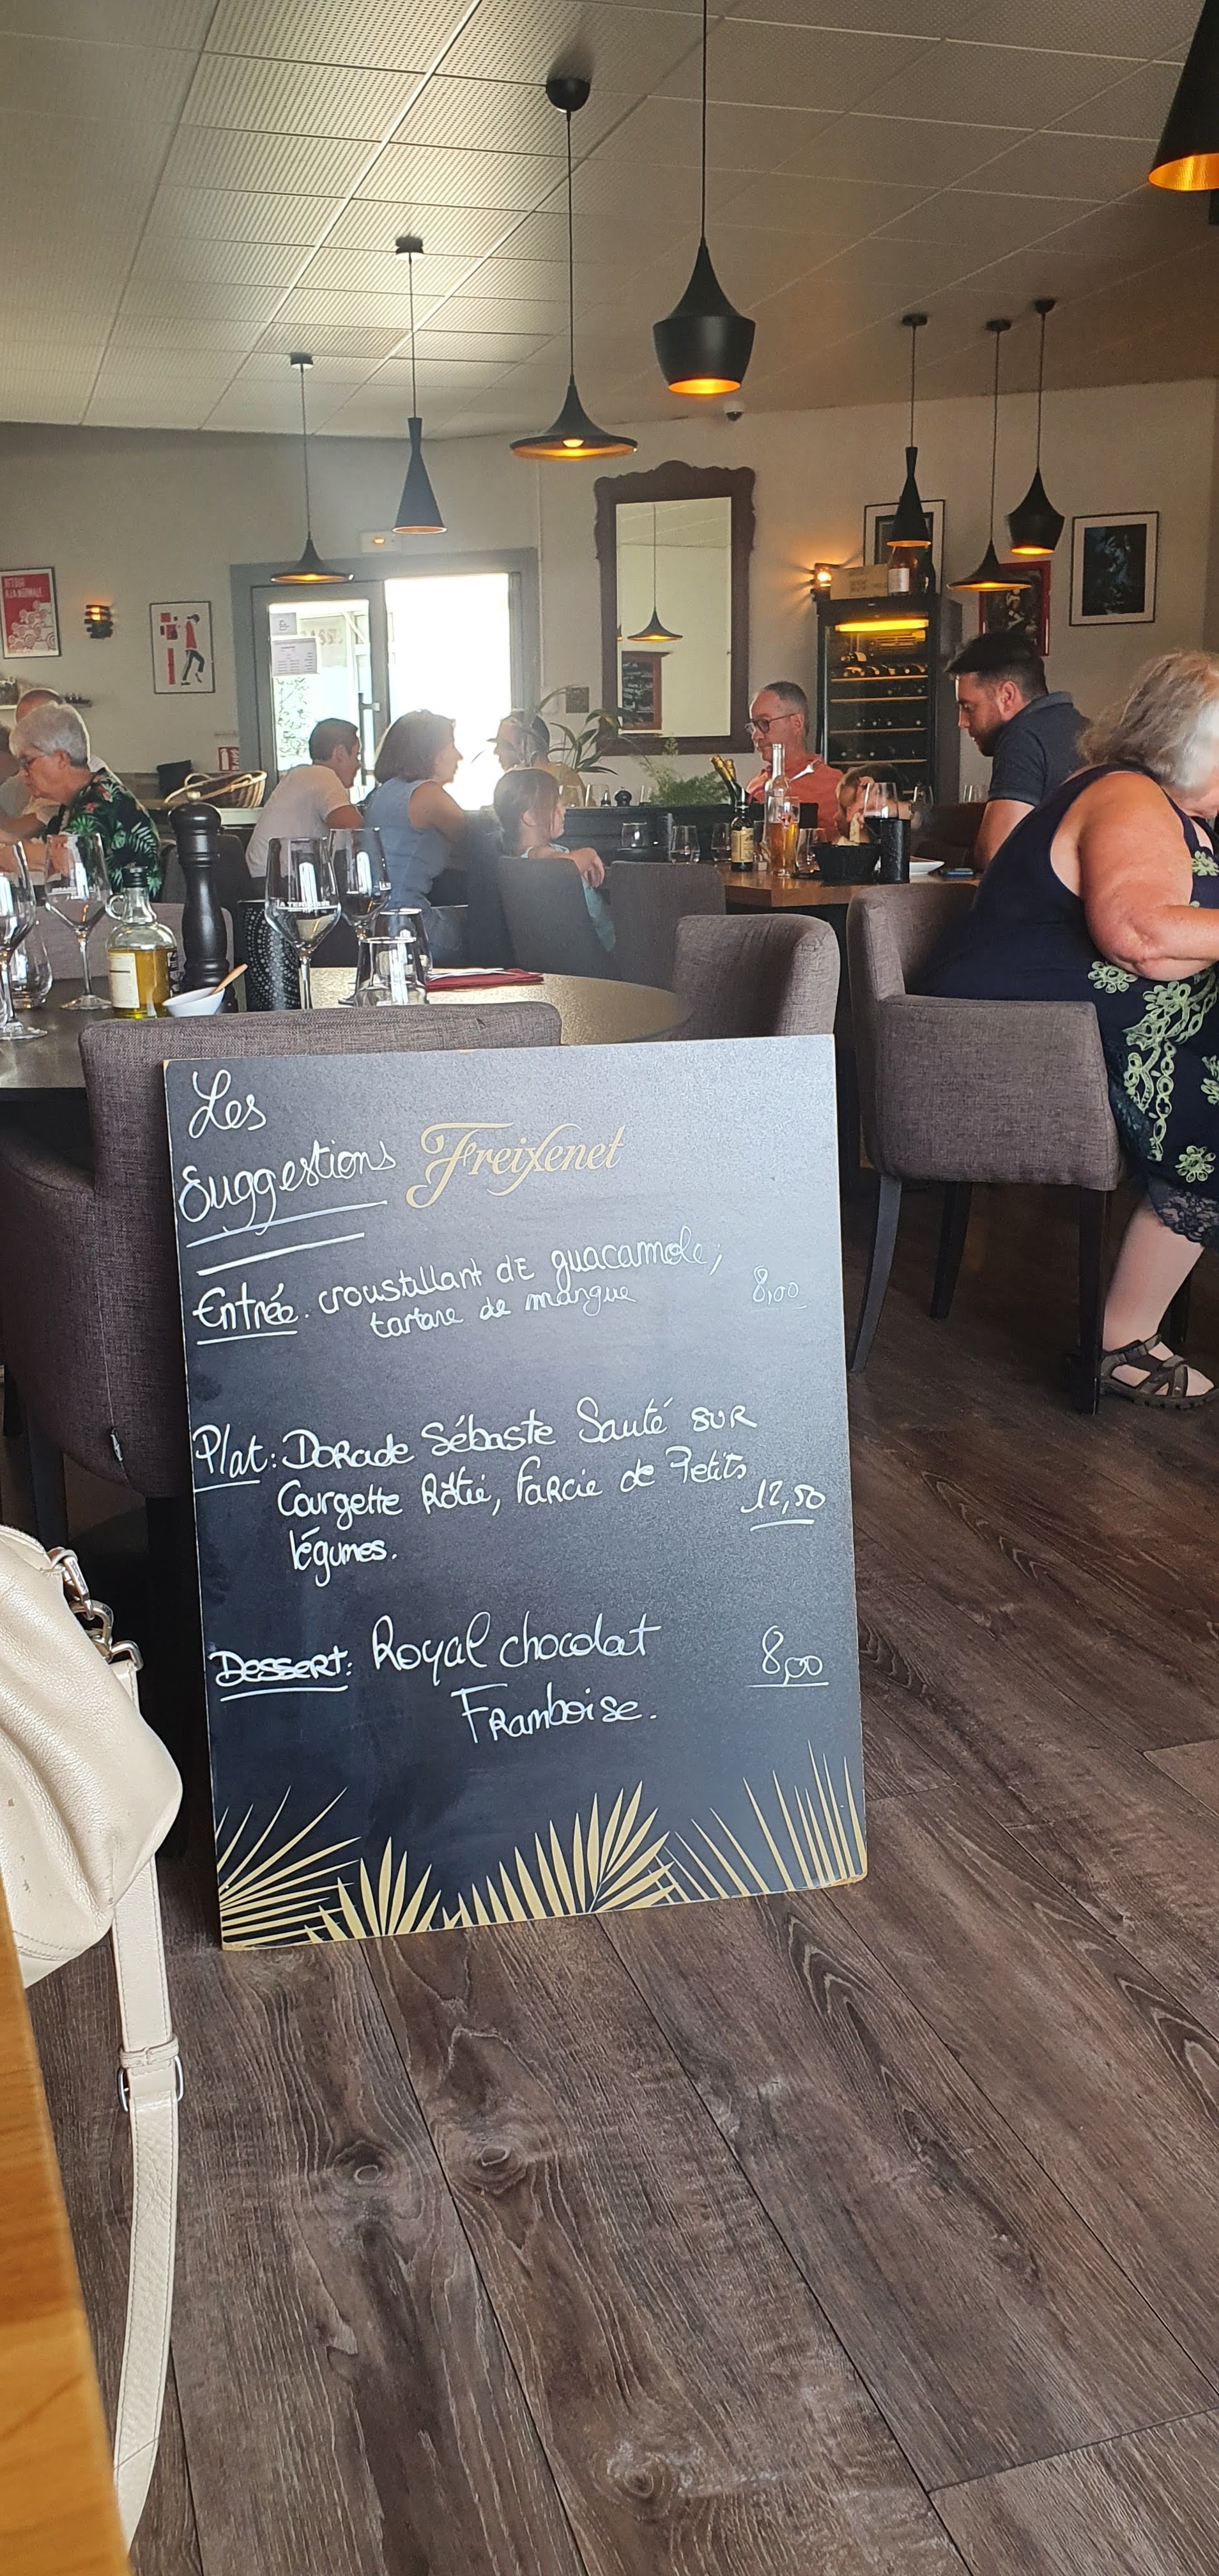 Les
Suggestions Freixenet
Entrée. croustillant dE guacamole,
tartare de mangue 8,00
Plat: DoRade Sébaste Sauté SUR
Courgette Rôtie, FaRcie de Petits
légumes. 12,50
DesseRt: Royal chocolat 8,00
FRamboise.